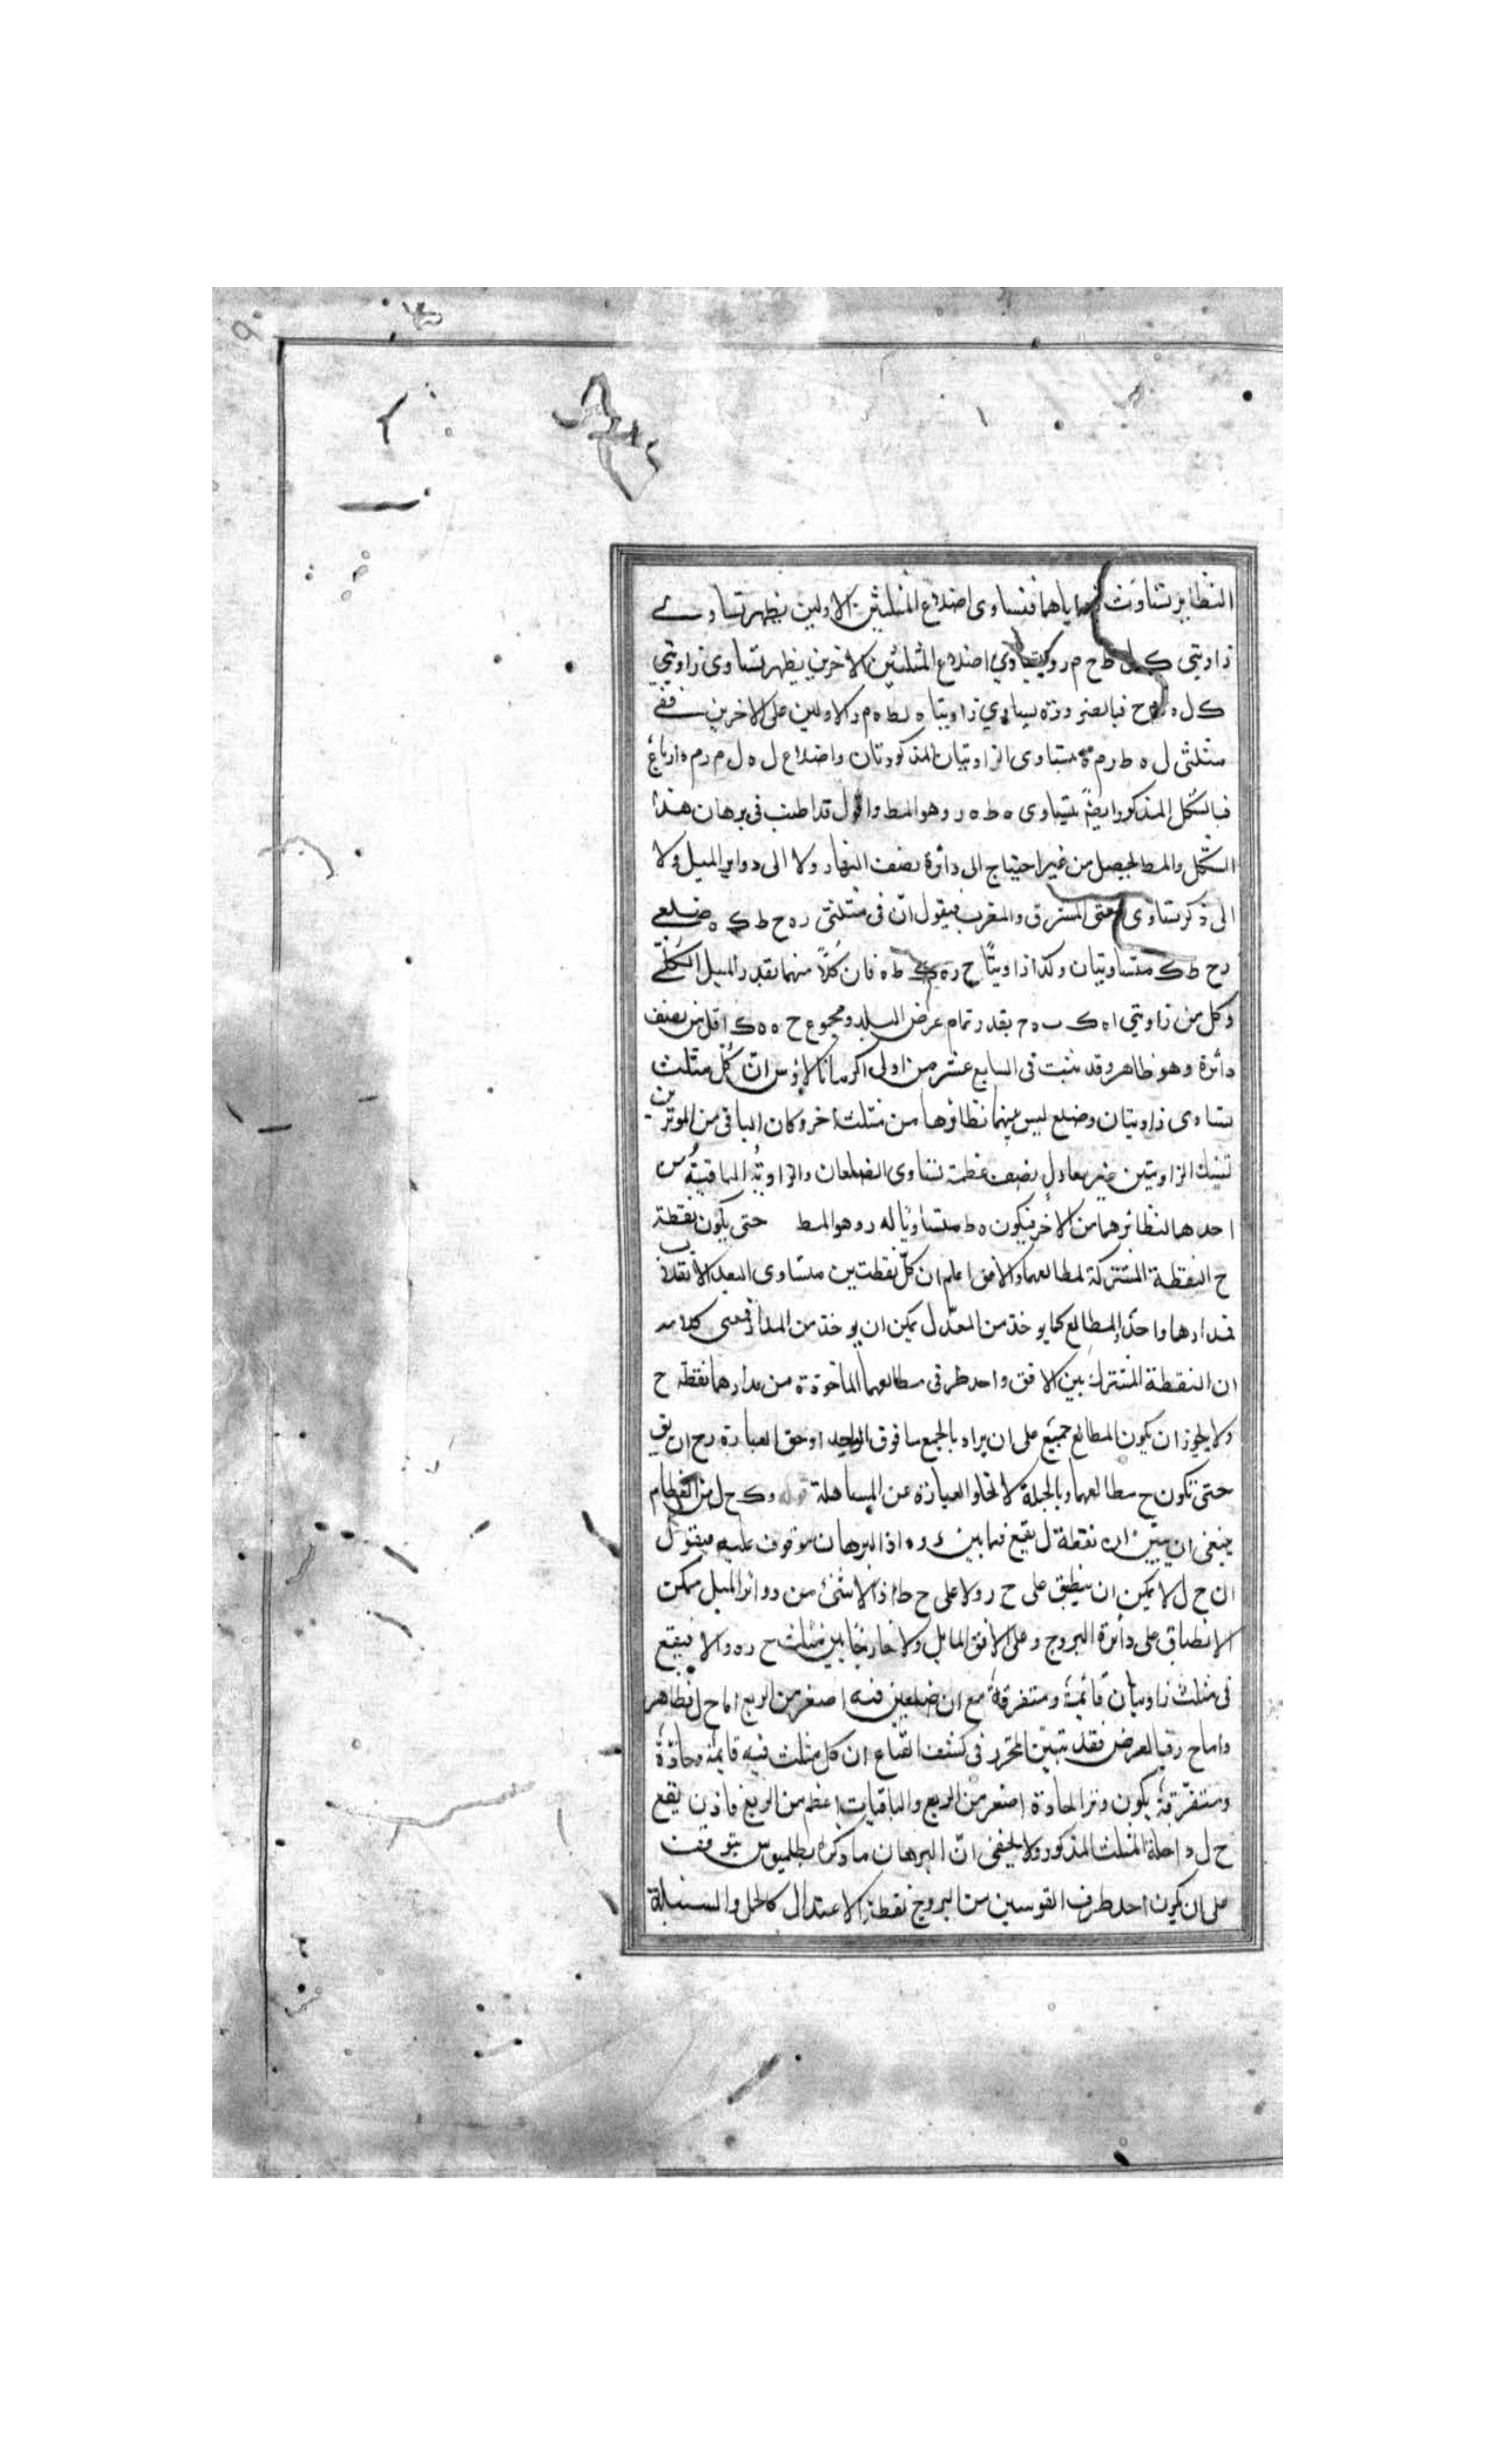 النظاير تساوت زواياهما فتساوى اضلاع المثلثين الاولين يظهر تساوى
زاويتي ك ل ط ح م ر وبتساوي اضلاع المثلثين الاخرين يظهر تساوى زاويتي
ك ل ه ح فبالضرورة يساوي زاويتا ه ل ط ه م ر الاولين على الاخرين ففي
مثلثى ل ه ط ر م ه متساوى الزاويتان المذكورتان واضلاع ل ه ل م ر م ه ارباع
فبالشكل المذكور ايضًا يتساوى ه ط ه ر وهو المط واقول قد اطنب فى برهان هذا
الشكل والمط يحصل من غير احتياج الى دائرة نصف النهار ولا الى دواير الميل ولا
الى ذكر تساوى سعتى المشرق والمغرب فيقول انّ فى مثلثى ر ه ح ط ك ه ضلعى
ر ح ط ك متساويتان وكذا زاويتا ح ر ه ك ط ه فان كلاً منهما بقدر الميل الكلّى
وكل من زاويتي ا ه ك ب ه ح بقدر تمام عرض البلد ومجموع ح ه ه ك اقل من نصف
دائرة وهو ظاهر وقد ثبت فى السابع عشر من اولى اكر مانالاؤس انّ كل مثلث
تساوى زاويتان وضلع ليس بينهما نظائرها من مثلث اخر وكان الباقى من الموترين
تينك الزاويتين غير معادل نصف عظمة تتساوى الضلعان والزاوية الباقية من
احدهما لنظائرهما من الاخر فيكون ه ط متساويًا له ر وهو المط حتى يكون نقطة
ح النقطة المشتركة لمطالعهما والافق اعلم ان كلّ نقطتين متساوى البعد الانقلاب
فمدارهما واحد والمطالع كما يوخذ من المعدّل يمكن ان يوخذ من المدار فمعنى كلامه
ان النقطة المشترك بين الافق واحد طرفى مطالعهما الماخوذة من مدارهما نقطة ح
ولا يجوز ان يكون المطالع جميع على ان يراد بالجمع ما فوق الواحد اوحق العبارة ح ان يق
حتى تكون ح مطالعهما وبالجملة لا تخلو العبارة عن المساهلة قوله وك ح ل من العظام
ينبغى ان يبين ان نقطة ل يقع فيما بين ر ه اذ البرهان موقوف عليه فيقول
ان ح ل لا يمكن ان ينطبق على ح ر ولا على ح ط اذ لا شئ من دوائر الميل ممكن
الانطباق على دائرة البروج وعلى الافق المايل ولا خارجًا بين مثلث ح ر ه والا فيقع
فى مثلث زاويتان قائمة ومنفرجة مع ان ضلعين فيه اصغر من الربع اما ح ل فظاهر
واما ح ر فبالعرض فقد تبيّن المحرر فى كشف القناع ان كل مثلث فيه قايمة وحادّة
ومنفرجة يكون وتر الحادة اصغر من الربع والباقيات اعظم من الربع فاذن يقع
ح ل داخلة المثلث المذكور ولا يخفى انّ البرهان ما ذكره بطلميوس يتوقف
على ان يكون احد طرف القوسين من البروج نقطة الاعتدال كالحمل والسنبلة